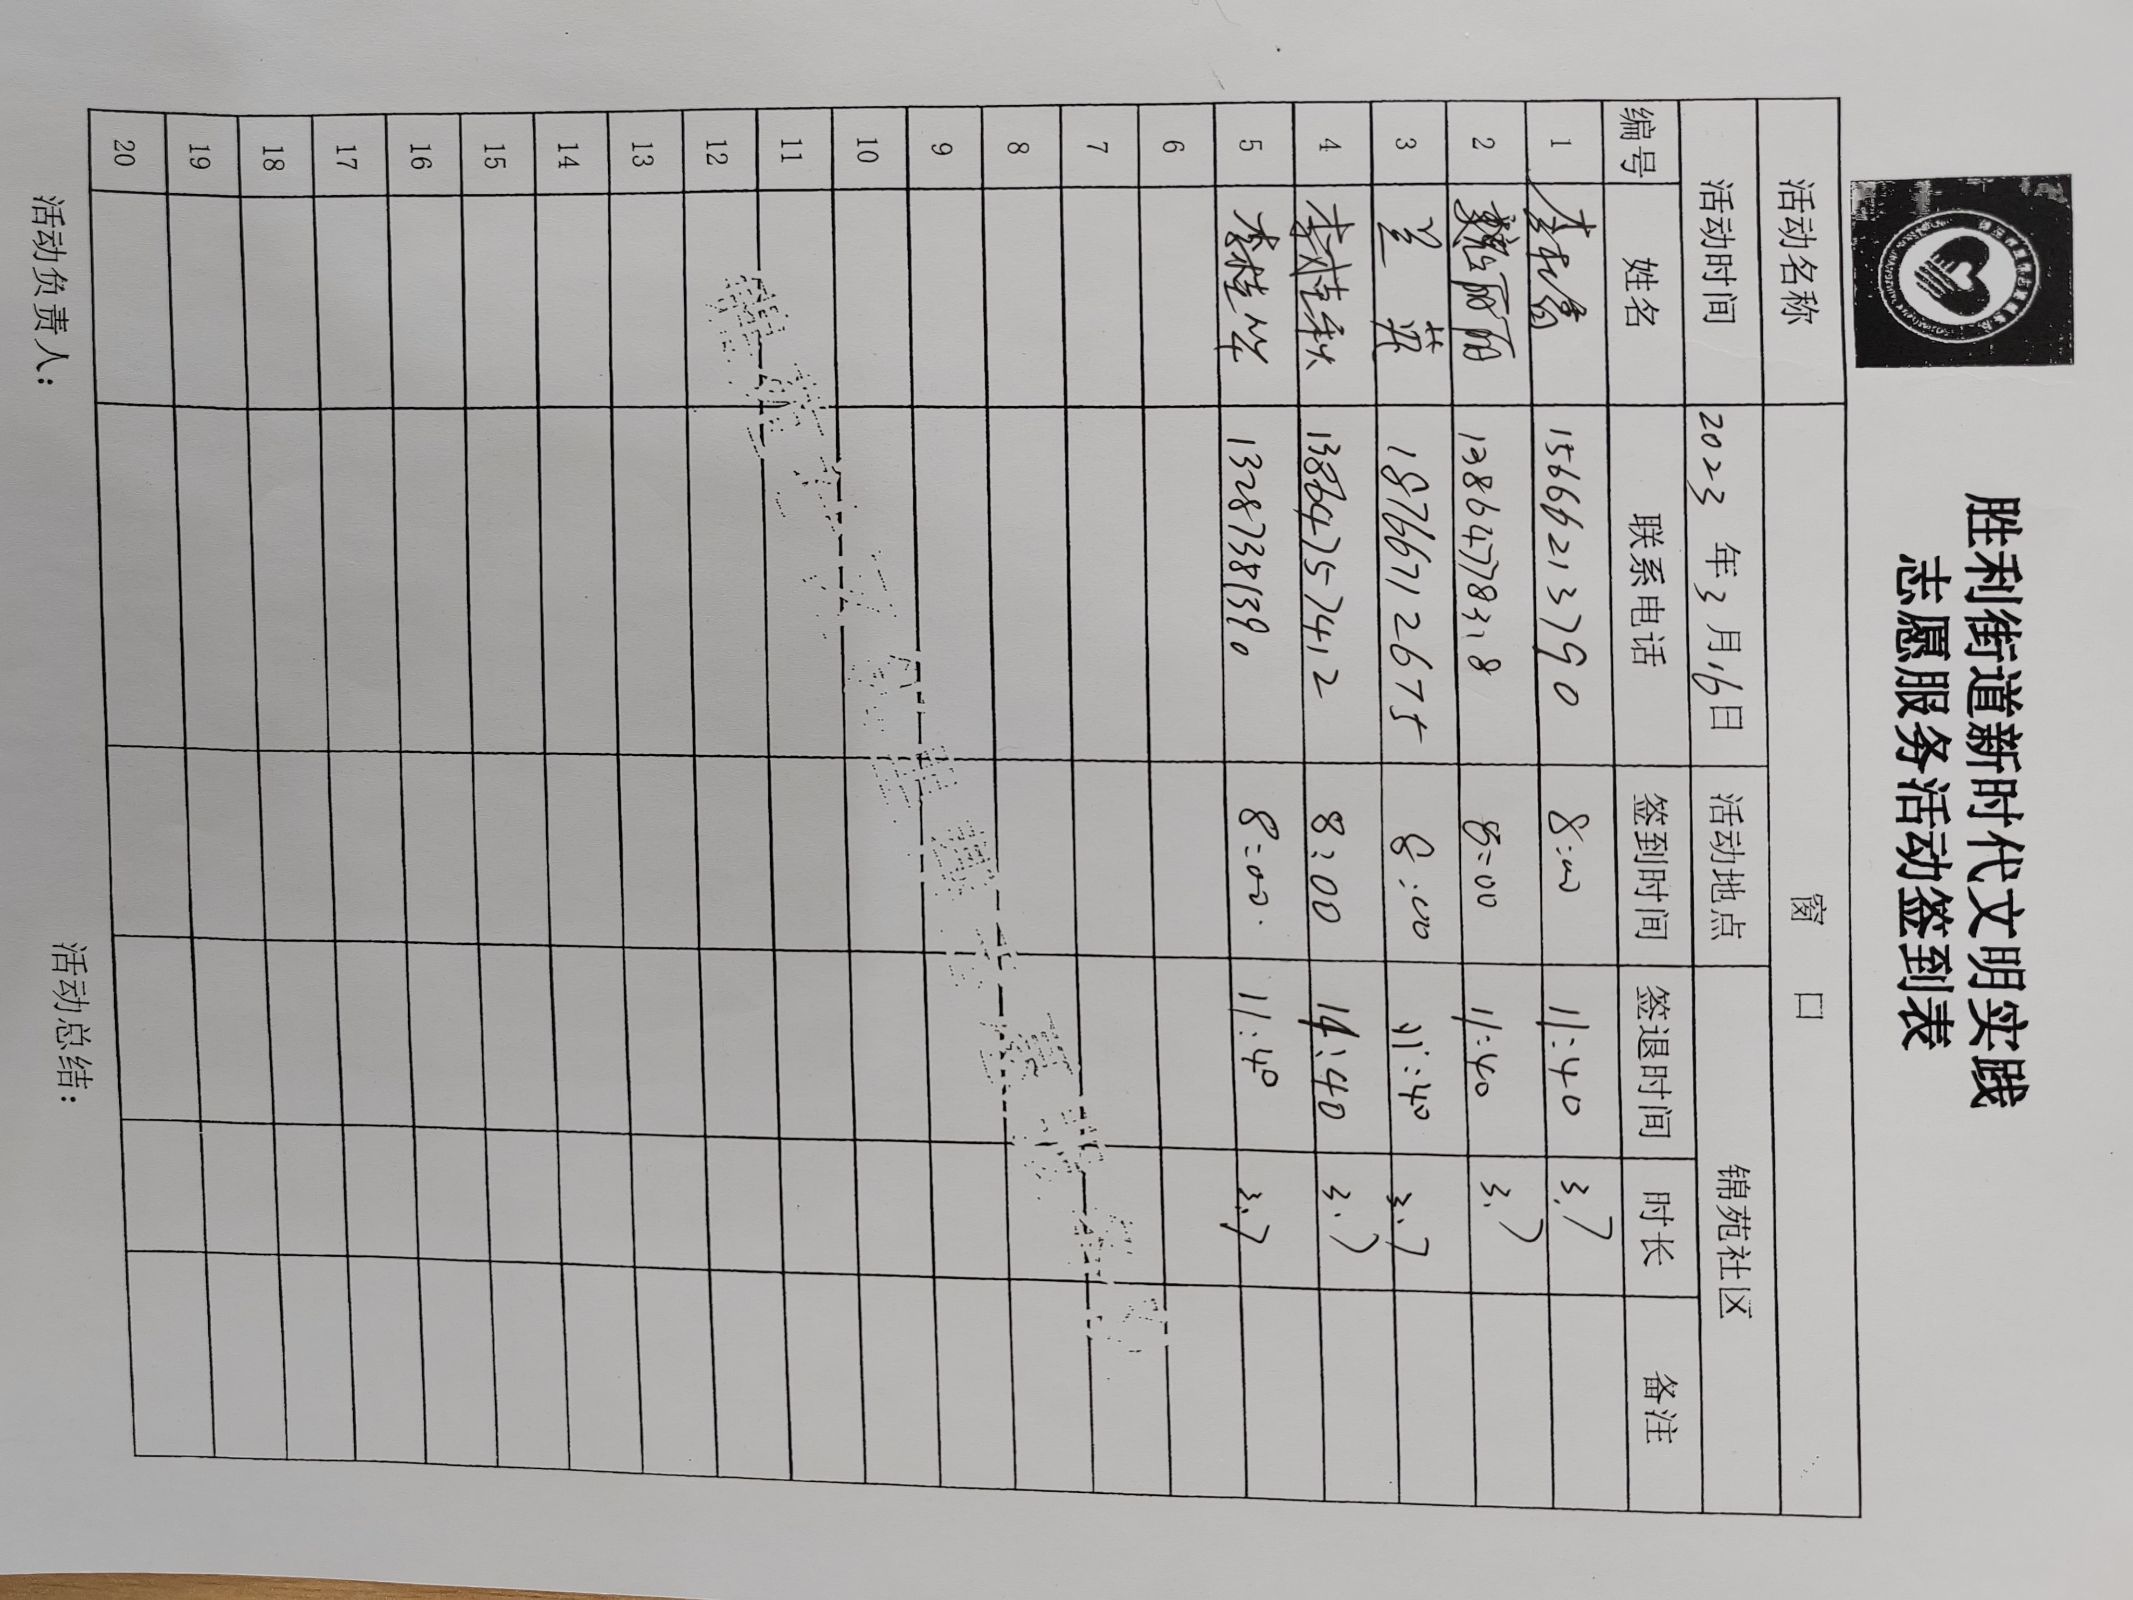 胜利街道新时代文明实践
志愿服务活动签到表
活动名称 窗 口
活动时间 2023 年 3 月 16 日 活动地点 锦苑社区
编号 姓名 联系电话 签到时间 签退时间 时长 备注
1 15666213790 8:00 11:40 3.7
2 魏丽丽 13864778318 8:00 11:40 3.7
3 兰英 18766712675 8:00 11:40 3.7
4 李桂秋 13864757412 8:00 11:40 3.7
5 李桂华 13287381390 8:00 11:40 3.7
6
7
8
9
10
11
12
13
14
15
16
17
18
19
20
活动负责人: 活动总结: